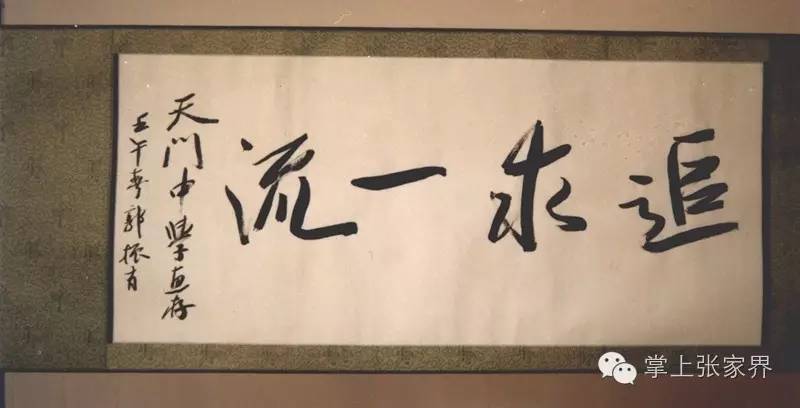 追求一流
天门中学惠存
壬午春郭振有
掌上张家界